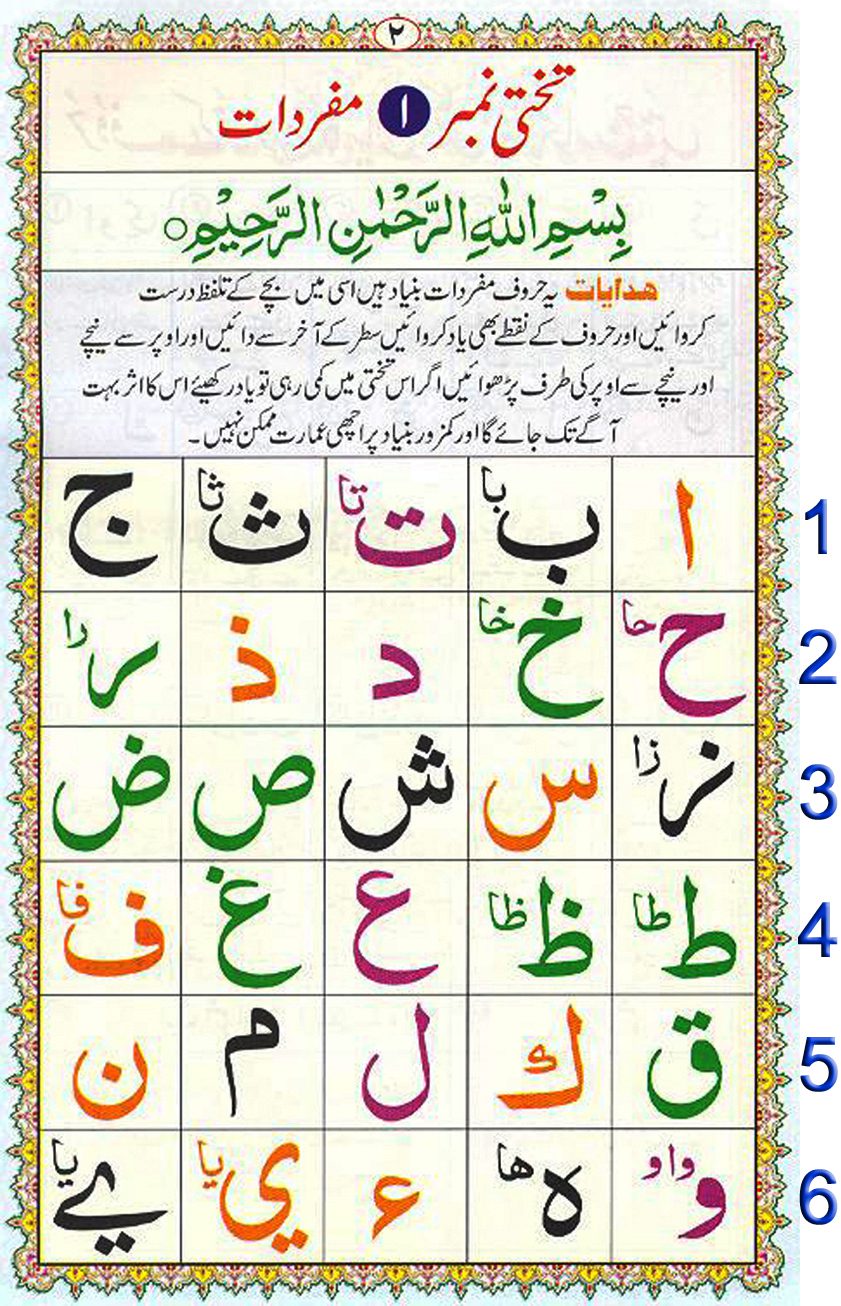 ٢
تختی نمبر ١ مفردات
بِسْمِ اللهِ الرَّحْمٰنِ الرَّحِيْمِ ○
ھدایات یہ حروف مفردات بنیاد ہیں اسی میں بچے کے تلفظ درست
کروائیں اور حروف کے نقطے بھی یاد کروائیں سطر کے آخر سے دائیں اور اوپر سے نیچے
اور نیچے سے اوپر کی طرف پڑھوائیں اگر اس تختی میں کمی رہی تو یاد رکھیئے اس کا اثر بہت
آگے تک جائے گا اور کمزور بنیاد پر اچھی عمارت ممکن نہیں۔
ا ب با ت تا ث ثا ج 1
ح حا خ خا د ذ ر را 2
ز زا س ش ص ض 3
ط طا ظ ظا ع غ ف فا 4
ق ك ل م ن 5
و واو ه ها ء ي يا ے يا 6